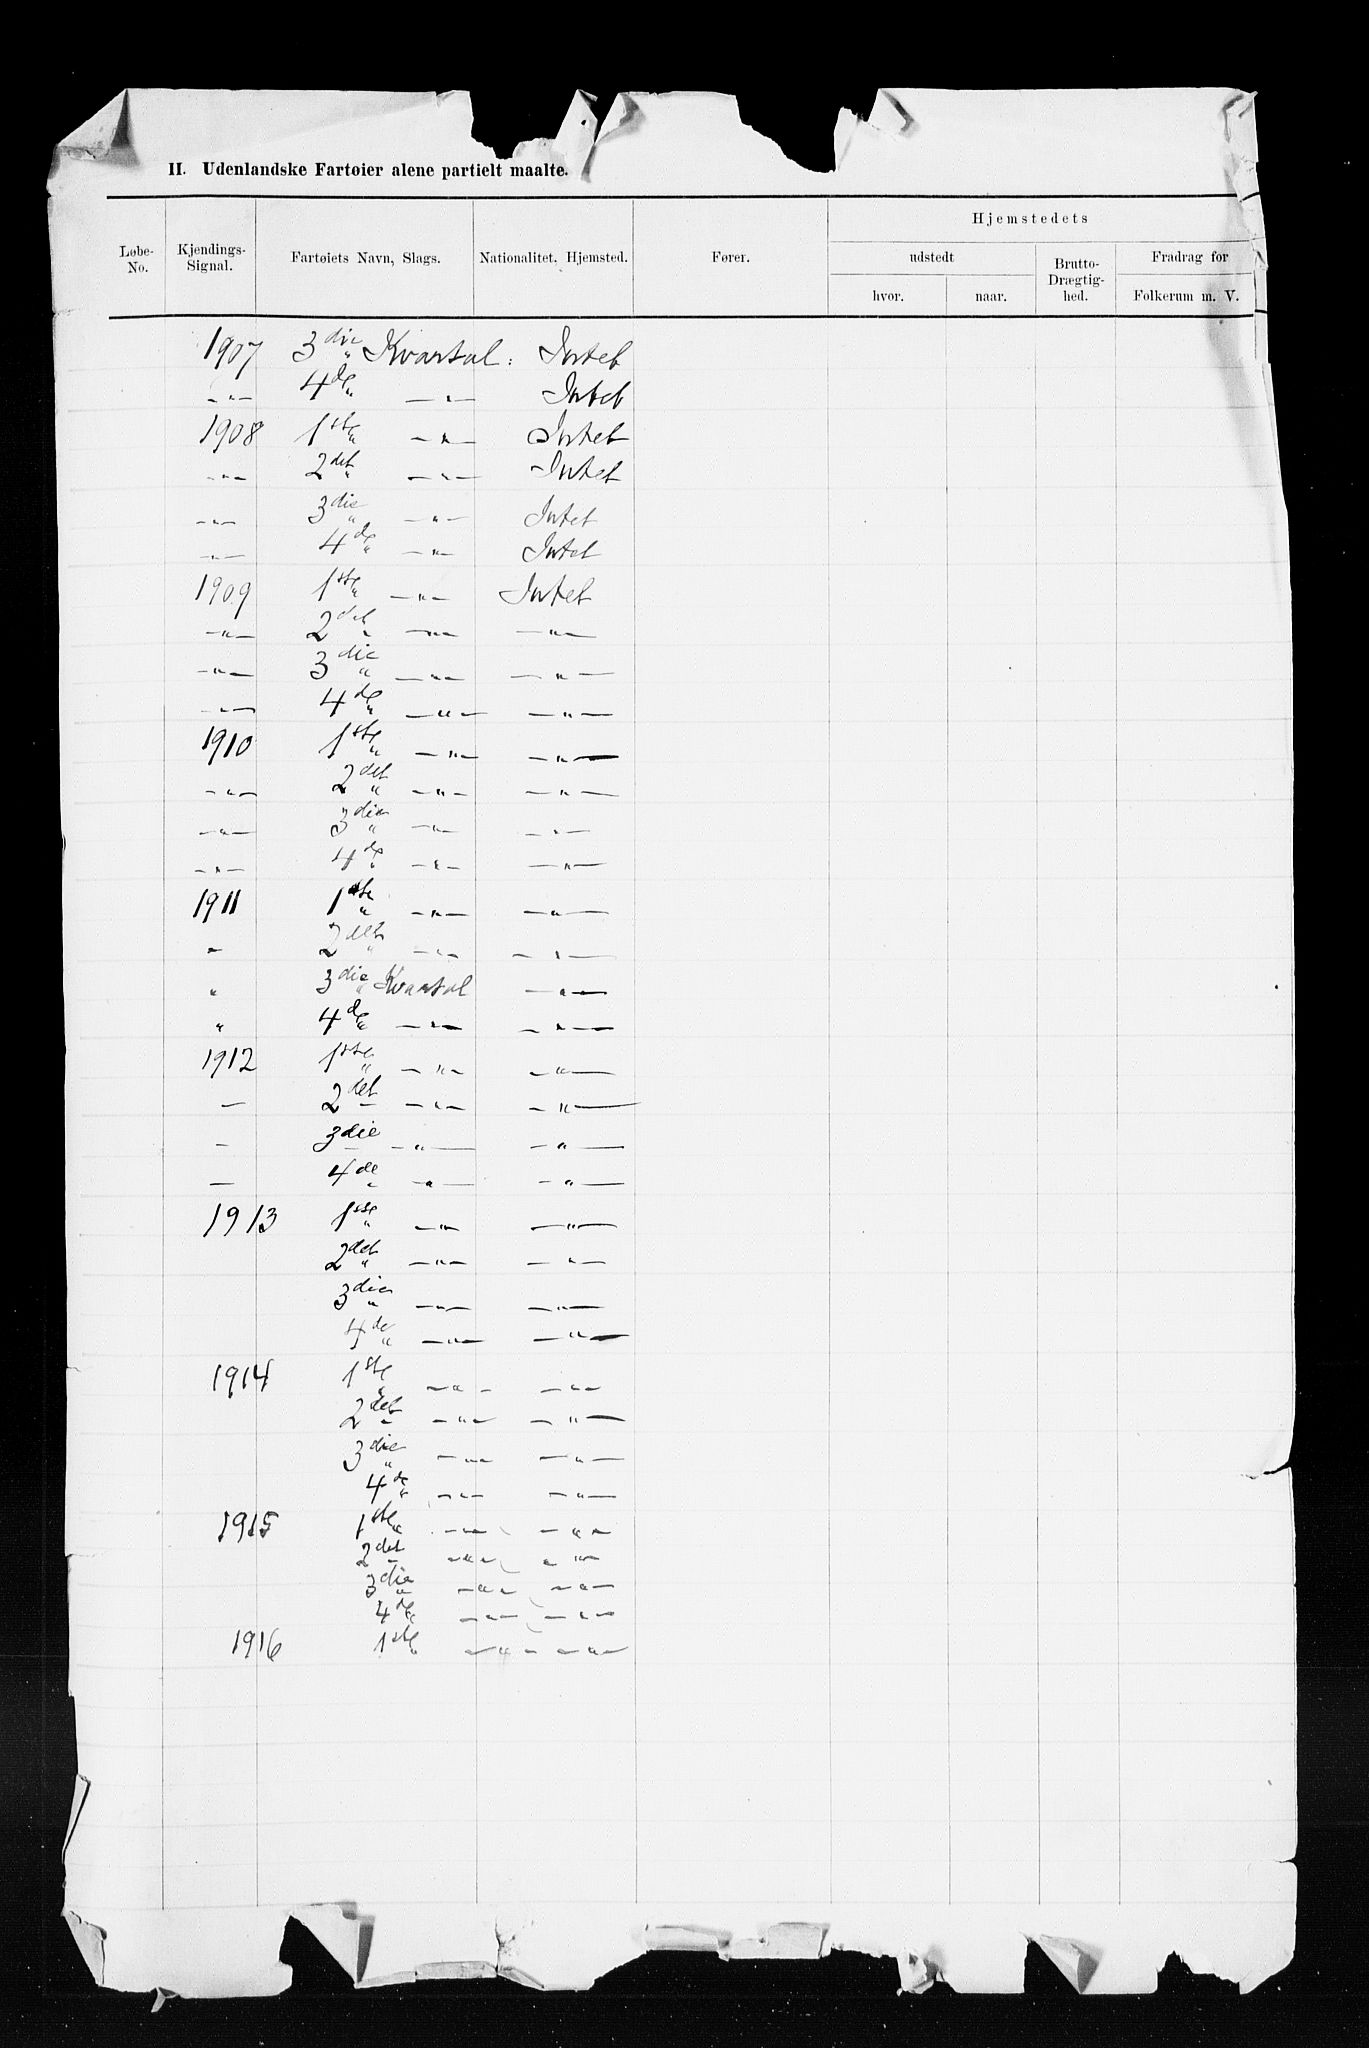 II. Udenlandske Fartøier alene partielt maalte.
Løbe-No. Kjendings-Signal. Fartøiets Navn, Slags. Nationalitet, Hjemsted. Fører. Hjemstedets
udstedt Brutto-Drægtig-hed. Fradrag for
hvor. naar. Folkerum m. V.
1907 3die " Kvartal: Intet
—"— 4de " —"— Intet
1908 1ste " —"— Intet
—"— 2det " —"— Intet
—"— 3die " —"— Intet
—"— 4de " —"— Intet
1909 1ste " —"— Intet
—"— 2det " —"— —"—
—"— 3die " —"— —"—
—"— 4de " —"— —"—
1910 1ste " —"— —"—
—"— 2det " —"— —"—
—"— 3die " —"— —"—
—"— 4de " —"— —"—
1911 1ste " —"— —"—
" 2det " —"— —"—
" 3die " Kvartal —"—
" 4de " —"— —"—
1912 1ste " —"— —"—
— 2det — —"— —"—
— 3die — —"— —"—
— 4de " —"— —"—
1913 1ste " —"— —"—
2det " —"— —"—
3die " —"— —"—
4de " —"— —"—
1914 1ste " —"— —"—
2det " —"— —"—
3die " —"— —"—
4de " —"— —"—
1915 1ste " —"— —"—
2det — —"— —"—
3die " —"— —"—
4de " —"— —"—
1916 1ste " —"— —"—